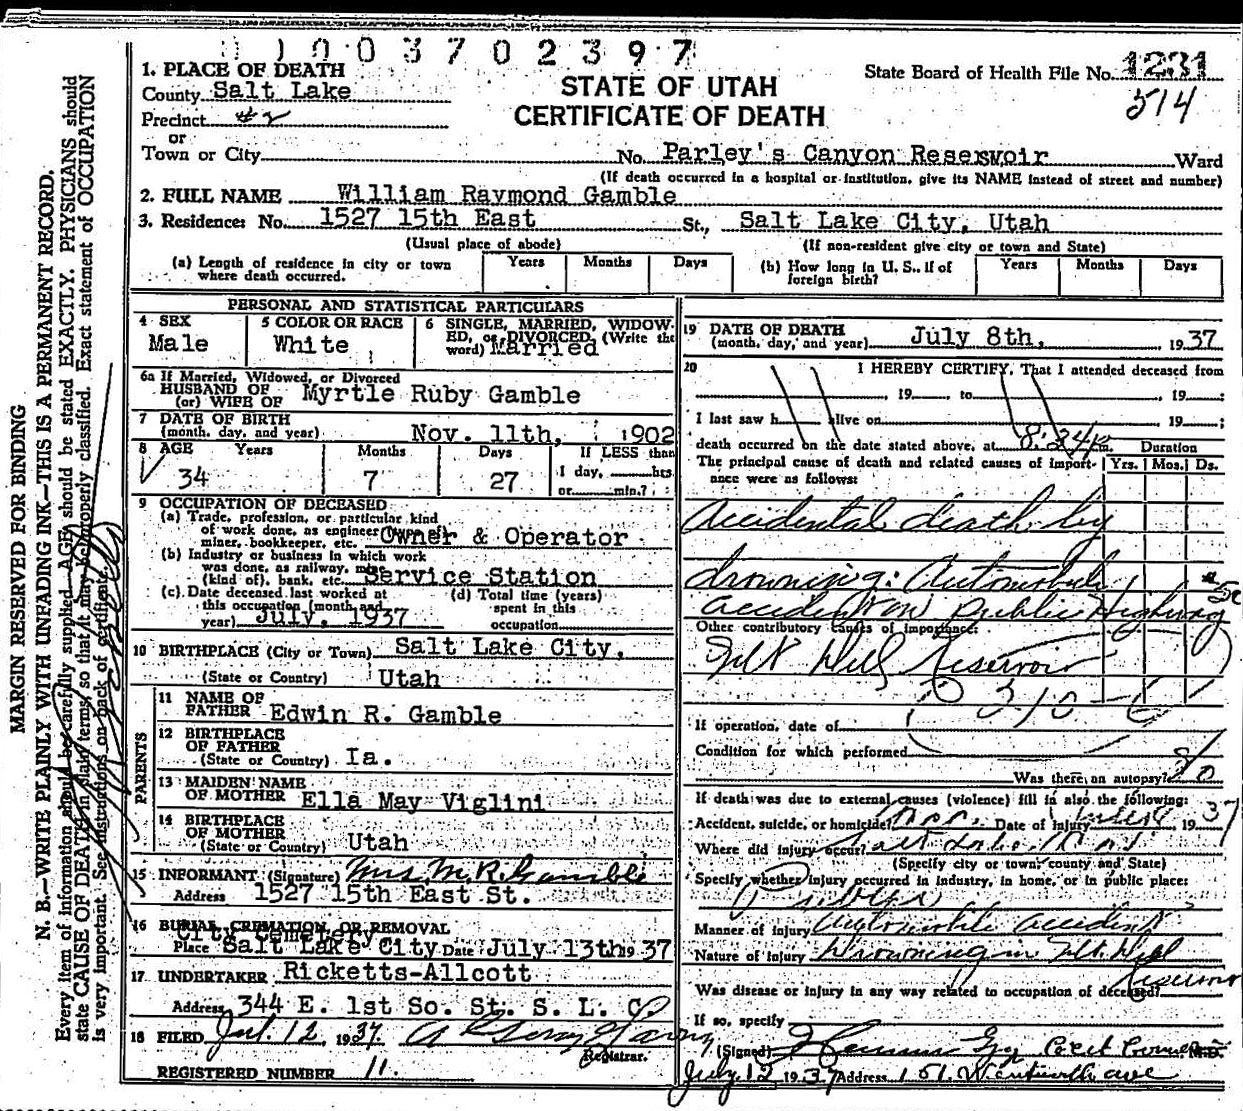 1003702397
1. PLACE OF DEATH
County Salt Lake
Precinct #2
or
Town or City
STATE OF UTAH
CERTIFICATE OF DEATH
State Board of Health File No. 1231
514
No. Parley's Canyon Reservoir Ward
(If death occurred in a hospital or institution, give its NAME instead of street and number)
2. FULL NAME William Raymond Gamble
3. Residence: No. 1527 15th East St., Salt Lake City, Utah
(Usual place of abode) (If non-resident give city or town and State)
(a) Length of residence in city or town where death occurred. Years Months Days
(b) How long in U. S., if of foreign birth? Years Months Days
MARGIN RESERVED FOR BINDING
N. B.—WRITE PLAINLY WITH UNFADING INK—THIS IS A PERMANENT RECORD.
Every item of information should be carefully supplied. AGE should be stated EXACTLY. PHYSICIANS should
state CAUSE OF DEATH in plain terms, so that it may be properly classified. Exact statement of OCCUPATION
is very important. See instructions on back of certificate.
PERSONAL AND STATISTICAL PARTICULARS
4 SEX Male
5 COLOR OR RACE White
6 SINGLE, MARRIED, WIDOWED, or DIVORCED, (Write the word) Married
6a If Married, Widowed, or Divorced
HUSBAND OF
(or) WIFE OF Myrtle Ruby Gamble
7 DATE OF BIRTH
(month, day, and year) Nov. 11th, 1902
8 AGE Years Months Days If LESS than
34 7 27 1 day, hrs.
or min.?
9 OCCUPATION OF DECEASED
(a) Trade, profession, or particular kind
of work done, as engineer,
miner, bookkeeper, etc. Owner & Operator
(b) Industry or business in which work
was done, as railway, mine
(kind of), bank, etc. Service Station
(c) Date deceased last worked at
this occupation (month and
year) July, 1937
(d) Total time (years)
spent in this
occupation
10 BIRTHPLACE (City or Town) Salt Lake City,
(State or Country) Utah
PARENTS
11 NAME OF
FATHER Edwin R. Gamble
12 BIRTHPLACE
OF FATHER
(State or Country) Ia.
13 MAIDEN NAME
OF MOTHER Ella May Viglini
14 BIRTHPLACE
OF MOTHER
(State or Country) Utah
15 INFORMANT (Signature) Mrs. M. R. Gamble
Address 1527 15th East St.
16 BURIAL, CREMATION, OR REMOVAL
City Cemetery
Place Salt Lake City Date July 13th 1937
17 UNDERTAKER Ricketts-Allcott
Address 344 E. 1st So. St. S. L. C.
18 FILED Jul. 12, 1937.
Registrar.
REGISTERED NUMBER 11.
19 DATE OF DEATH
(month, day, and year) July 8th, 1937
20 I HEREBY CERTIFY, That I attended deceased from
, 19 to , 19 ;
I last saw h alive on 19 ;
death occurred on the date stated above, at 8:24 p m.
The principal cause of death and related causes of importance were as follows:
Duration
Yrs. Mos. Ds.
Accidental death by
drowning: Automobile
accident on public Highway
Other contributory causes of importance:
Mt. Dell Reservoir
210
If operation, date of
Condition for which performed
Was there an autopsy? No
If death was due to external causes (violence) fill in also the following:
Accident, suicide, or homicide? Acc. Date of injury July 8 1937
Where did injury occur? Salt Lake
(Specify city or town, county and State)
Specify whether injury occurred in industry, in home, or in public place:
Public
Manner of injury Automobile accident
Nature of injury Drowning in Mt. Dell
Reservoir
Was disease or injury in any way related to occupation of deceased?
If so, specify
(Signed) M.D.
July 12 1937 Address 151 Wentworth ave